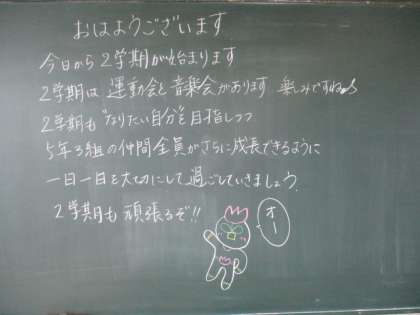 おはようございます
今日から2学期が始まります
2学期は運動会と音楽会があります 楽しみですね♪
2学期も"なりたい自分"を目指しつつ
5年3組の仲間全員がさらに成長できるように
一日一日を大切にして過ごしていきましょう。
2学期も頑張るぞ!!
オー